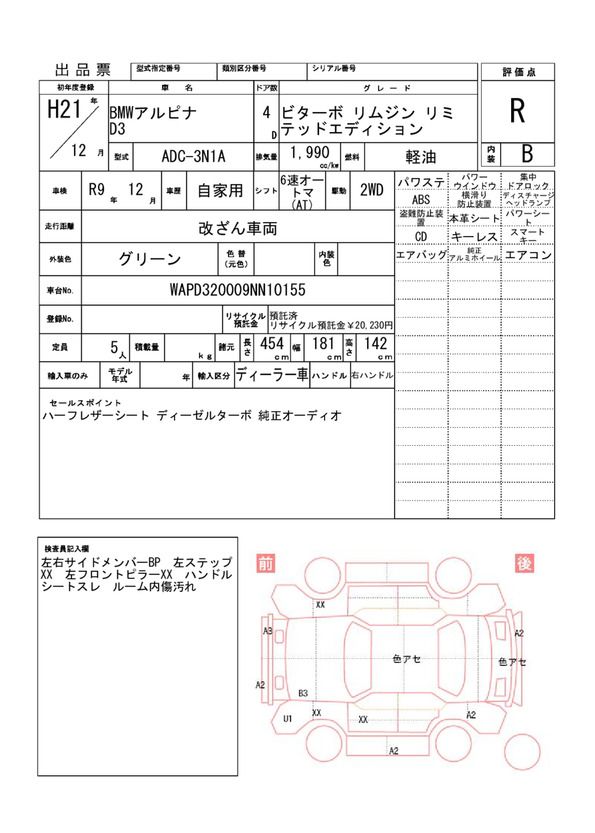 出品票 型式指定番号 類別区分番号 シリアル番号 評価点
初年度登録 車 名 ドア数 グ レ ー ド
H21 年 BMWアルピナ 4 ビターボ リムジン リミ R
D3 D テッドエディション
12 月 型式 ADC-3N1A 排気量 1,990 cc/kw 燃料 軽油 内装 B
車検 R9 年 12 月 車歴 自家用 シフト 6速オートマ(AT) 駆動 2WD
パワステ パワーウインドウ 集中ドアロック
ABS 横滑り防止装置 ディスチャージヘッドランプ
走行距離 改ざん車両 盗難防止装置 本革シート パワーシート
CD キーレス スマートキー
外装色 グリーン 色替(元色) 内装色 エアバッグ 純正アルミホイール エアコン
車台No. WAPD320009NN10155
登録No. リサイクル預託金 預託済
リサイクル預託金¥20,230円
定員 5人 積載量 kg 諸元 長さ 454 cm 幅 181 cm 高さ 142 cm
輸入車のみ モデル年式 年 輸入区分 ディーラー車 ハンドル 右ハンドル
セールスポイント
ハーフレザーシート ディーゼルターボ 純正オーディオ
検査員記入欄
左右サイドメンバーBP 左ステップ
XX 左フロントピラーXX ハンドル
シートスレ ルーム内傷汚れ
前 後
XX
A3 A2
色アセ 色アセ
A2
B3
U1 XX XX A2
A2